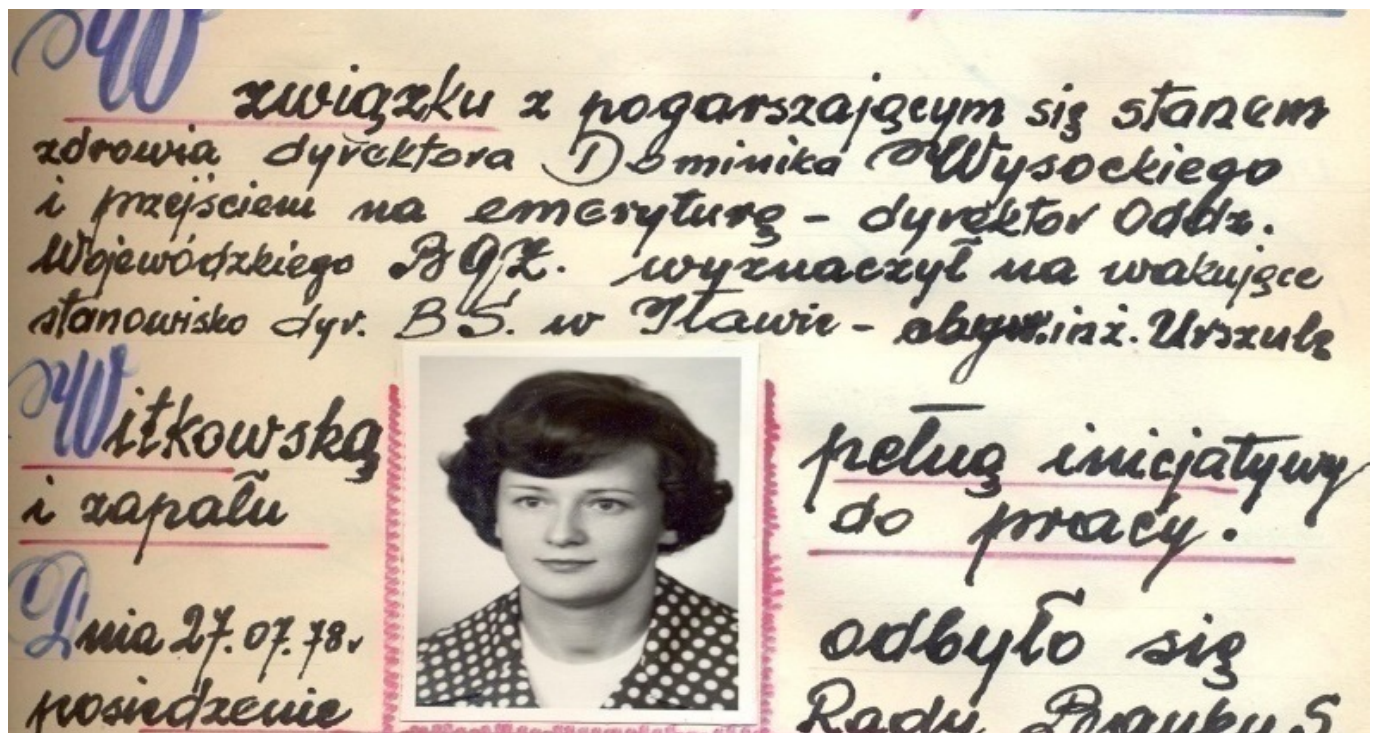 W związku z pogarszającym się stanem
zdrowia dyrektora Dominika Wysockiego
i przejściem na emeryturę - dyrektor Oddz.
Wojewódzkiego BGŻ. wyznaczył na wakujące
stanowisko dyr. BS. w Iławie - obyw. inż. Urszulę
Witkowską pełną inicjatywy
i zapału do pracy.
Dnia 27.07.78r odbyło się
posiedzenie Rady Banku S